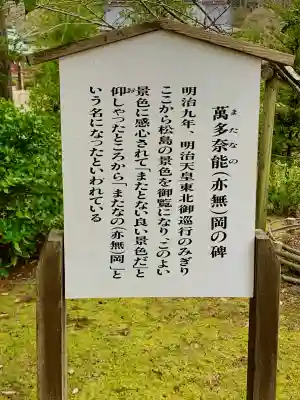 萬多奈能(亦無)岡の碑
またなの
明治九年、明治天皇東北御巡行のみぎり
ここから松島の景色を御覧になり、このよい
景色に感心されて「またとない良い景色だ」と
仰しゃったところから「またなの(亦無)岡」と
お
いう名になったといわれている